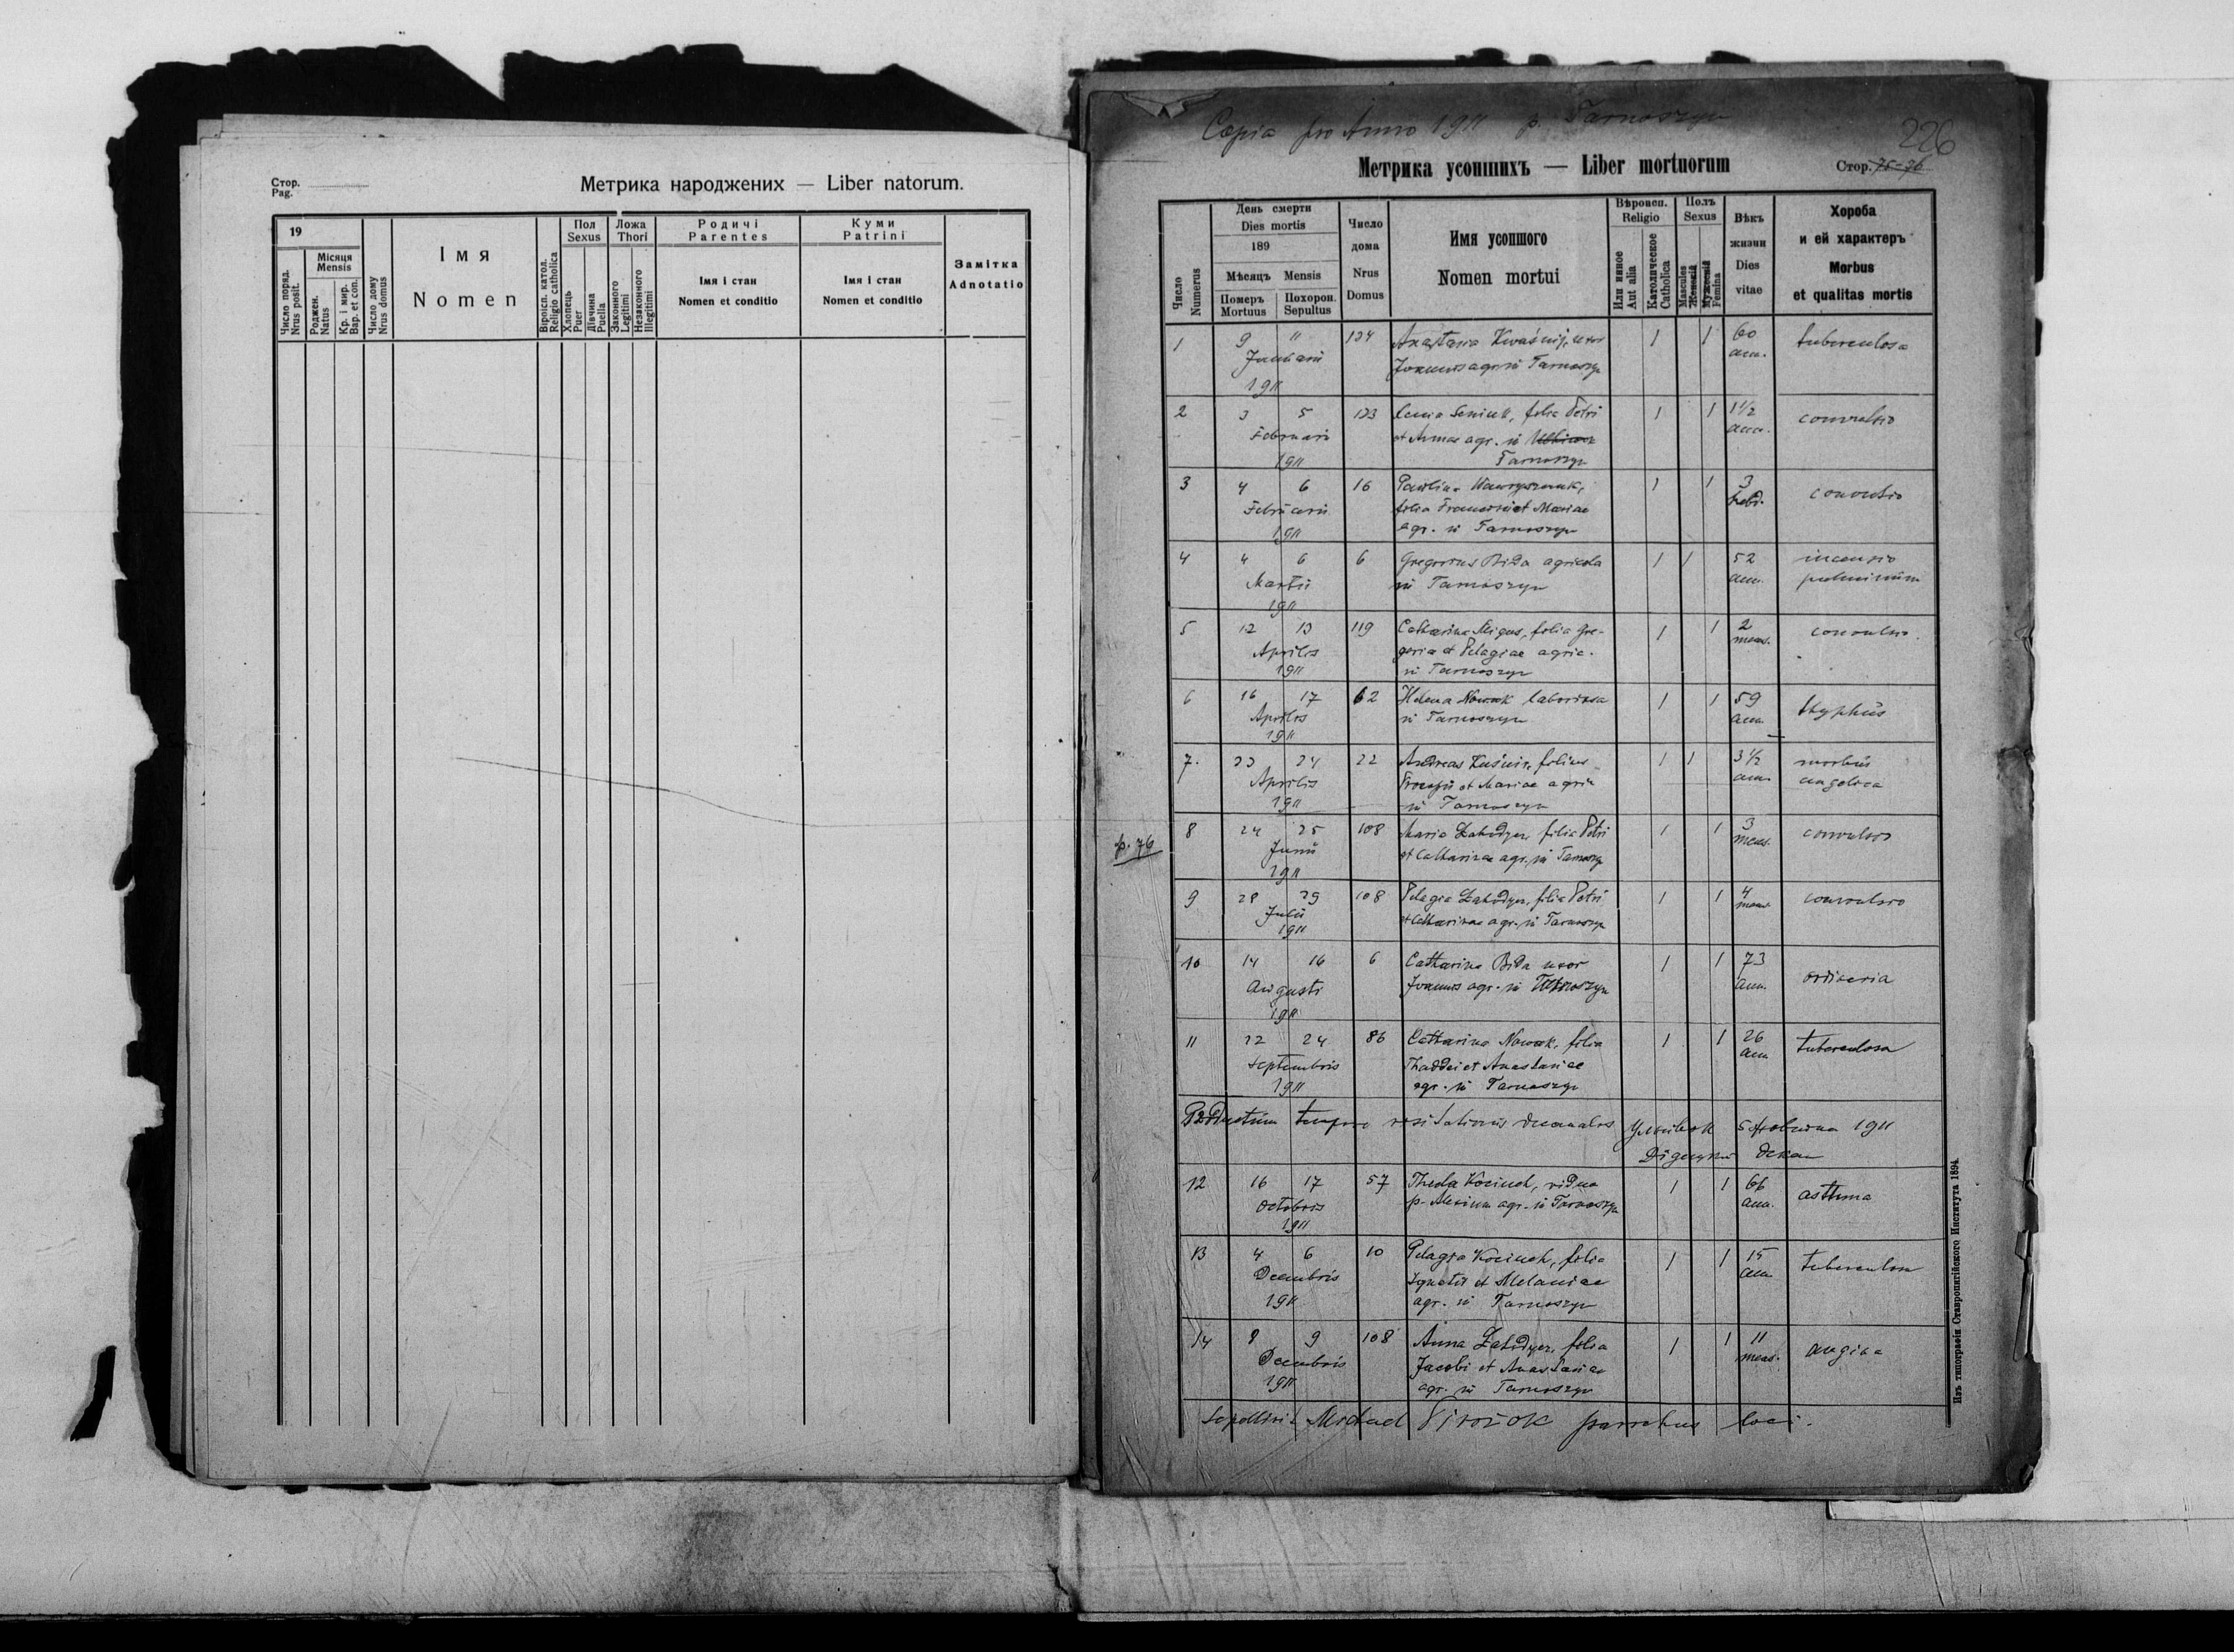 Стор.
Pag.
Метрика народжених — Liber natorum.
19
Число поряд.
Nrus posit.
Місяця
Mensis
Роджен.
Natus
Кр. і мир.
Bap. et con.
Число дому
Nrus domus
Імя
Nomen
Віроісп. катол.
Religio catholica
Пол
Sexus
Хлопець
Puer
Дівчина
Puella
Ложа
Thori
Законного
Legitimi
Незаконного
Illegitimi
Родичі
Parentes
Імя і стан
Nomen et conditio
Куми
Patrini
Імя і стан
Nomen et conditio
Замітка
Adnotatio
Copia pro Anno 1911 p. Tarnoszyn
226
Метрика усопшихъ — Liber mortuorum
Стор. 75-76
Число
Numerus
День смерти
Dies mortis
189
Мѣсяць Mensis
Померъ
Mortuus
Похорон.
Sepultus
Число
дома
Nrus
Domus
Имя усопшого
Nomen mortui
Вѣроисп.
Religio
Или инное
Aut alia
Католическое
Catholica
Полъ
Sexus
Mascules
Женскій
Мужескій
Femina
Вѣкъ
жизни
Dies
vitae
Хороба
и ей характеръ
Morbus
et qualitas mortis
1 9 11 134 Anastasia Kwaśnij, uxor 1 1 60 tuberculosa
Januarii Joannis agr. in Tarnoszyn ann.
1911
2 3 5 123 Seniuk, filia Petri 1 1 1 1/2 convulsio
Februarii et Annae agr. in ann.
1911 Tarnoszyn
3 4 6 16 Paulina Wawryszczuk, 1 1 3 convulsio
Februarii filia Francisci et Mariae hebd.
1911 agr. in Tarnoszyn
4 4 6 6 Gregorius Bida agricola 1 1 52
Martii in Tarnoszyn ann.
1911
5 12 13 119 Catharina Migus, filia Gre- 1 1 2 convulsio
Aprilis gorii et Pelagiae agric. mens.
1911 in Tarnoszyn
6 16 17 62 Helena Nowak laboriosa 1 1 59 thyphus
Aprilis in Tarnoszyn ann.
1911
7. 23 24 22 Andreas Kuśnir, filius 1 1 3 1/2 morbus
Aprilis Procopii et Mariae agric. ann.
1911 in Tarnoszyn
p. 76
8 24 25 108 Maria Zahodyn, filia Petri 1 1 3 convulsio
Junii et Catharinae agr. in Tarnoszyn mens.
1911
9 28 29 108 Pelagia Zahodyn, filia Petri 1 1 4 convulsio
Julii et Catharinae agr. in Tarnoszyn mens.
1911
10 14 16 6 Catharina Bida uxor 1 1 73
Augusti Joannis agr. in Tarnoszyn ann.
1911
11 22 24 86 Catharina Nowak, filia 1 1 26 tuberculosa
Septembris Thaddei et Anastasiae ann.
1911 agr. in Tarnoszyn
tempore visitationis decanalis 1911
декан
12 16 17 57 Thecla Kociuch, vidua 1 1 66 asthma
Octobris p. Maxim agr. in Tarnoszyn ann.
1911
13 4 6 10 Pelagia Kociuch, filia 1 1 15 tuberculosa
Decembris Ignatii et Melaniae ann.
1911 agr. in Tarnoszyn
14 8 9 108 Anna Zahodyn, filia 1 1 11 angina
Decembris Jacobi et Anastasiae mens.
1911 agr. in Tarnoszyn
Michael parochus loci.
Изъ типографіи Ставропигійского Института 1894.